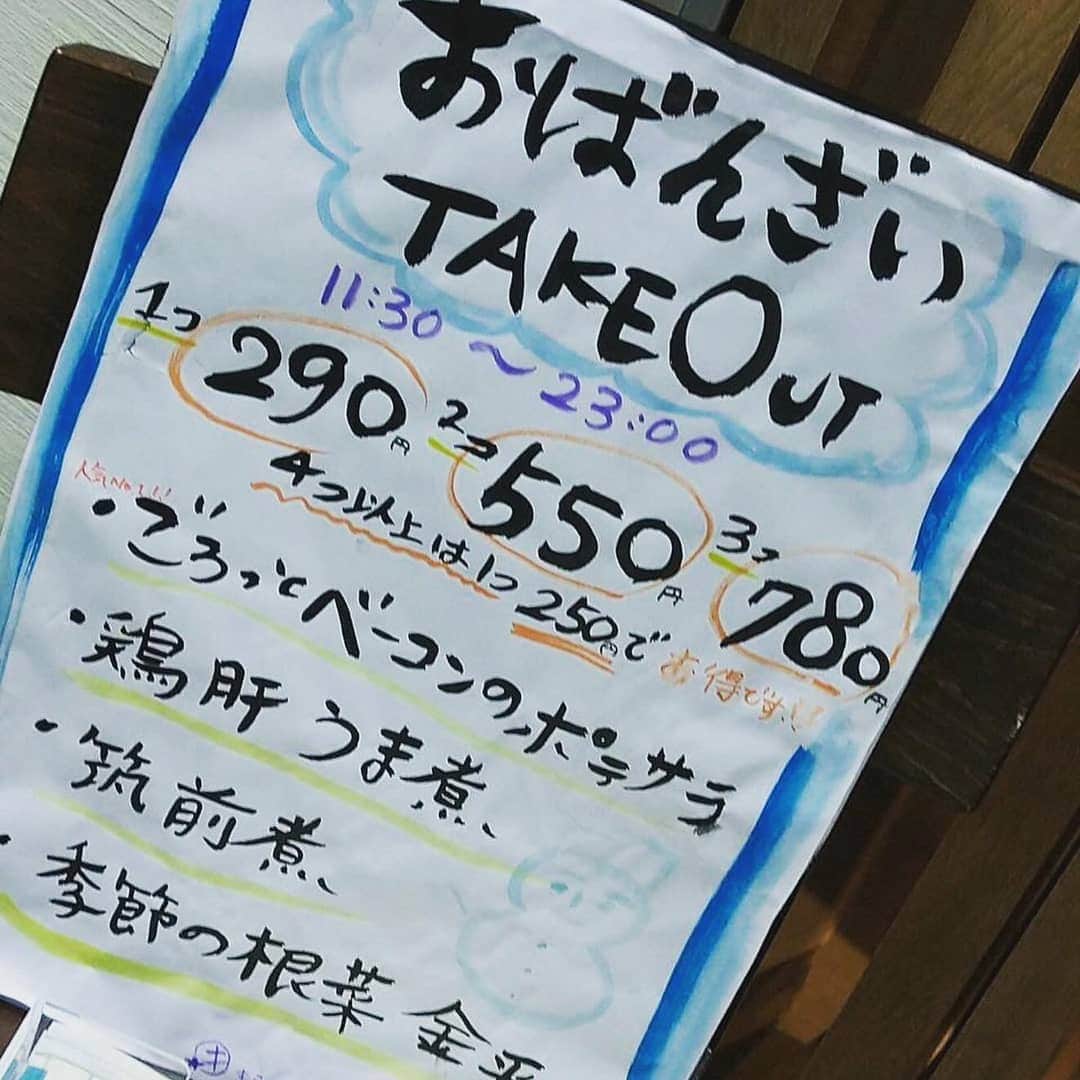 おばんざい
TAKEOUT
11:30～23:00
1つ 290円 2つ 550円 3つ 780円
4つ以上は1つ250円でお得です!!
人気No1!!
・ごろっとベーコンのポテサラ
・鶏肝うま煮
・筑前煮
・季節の根菜 金平